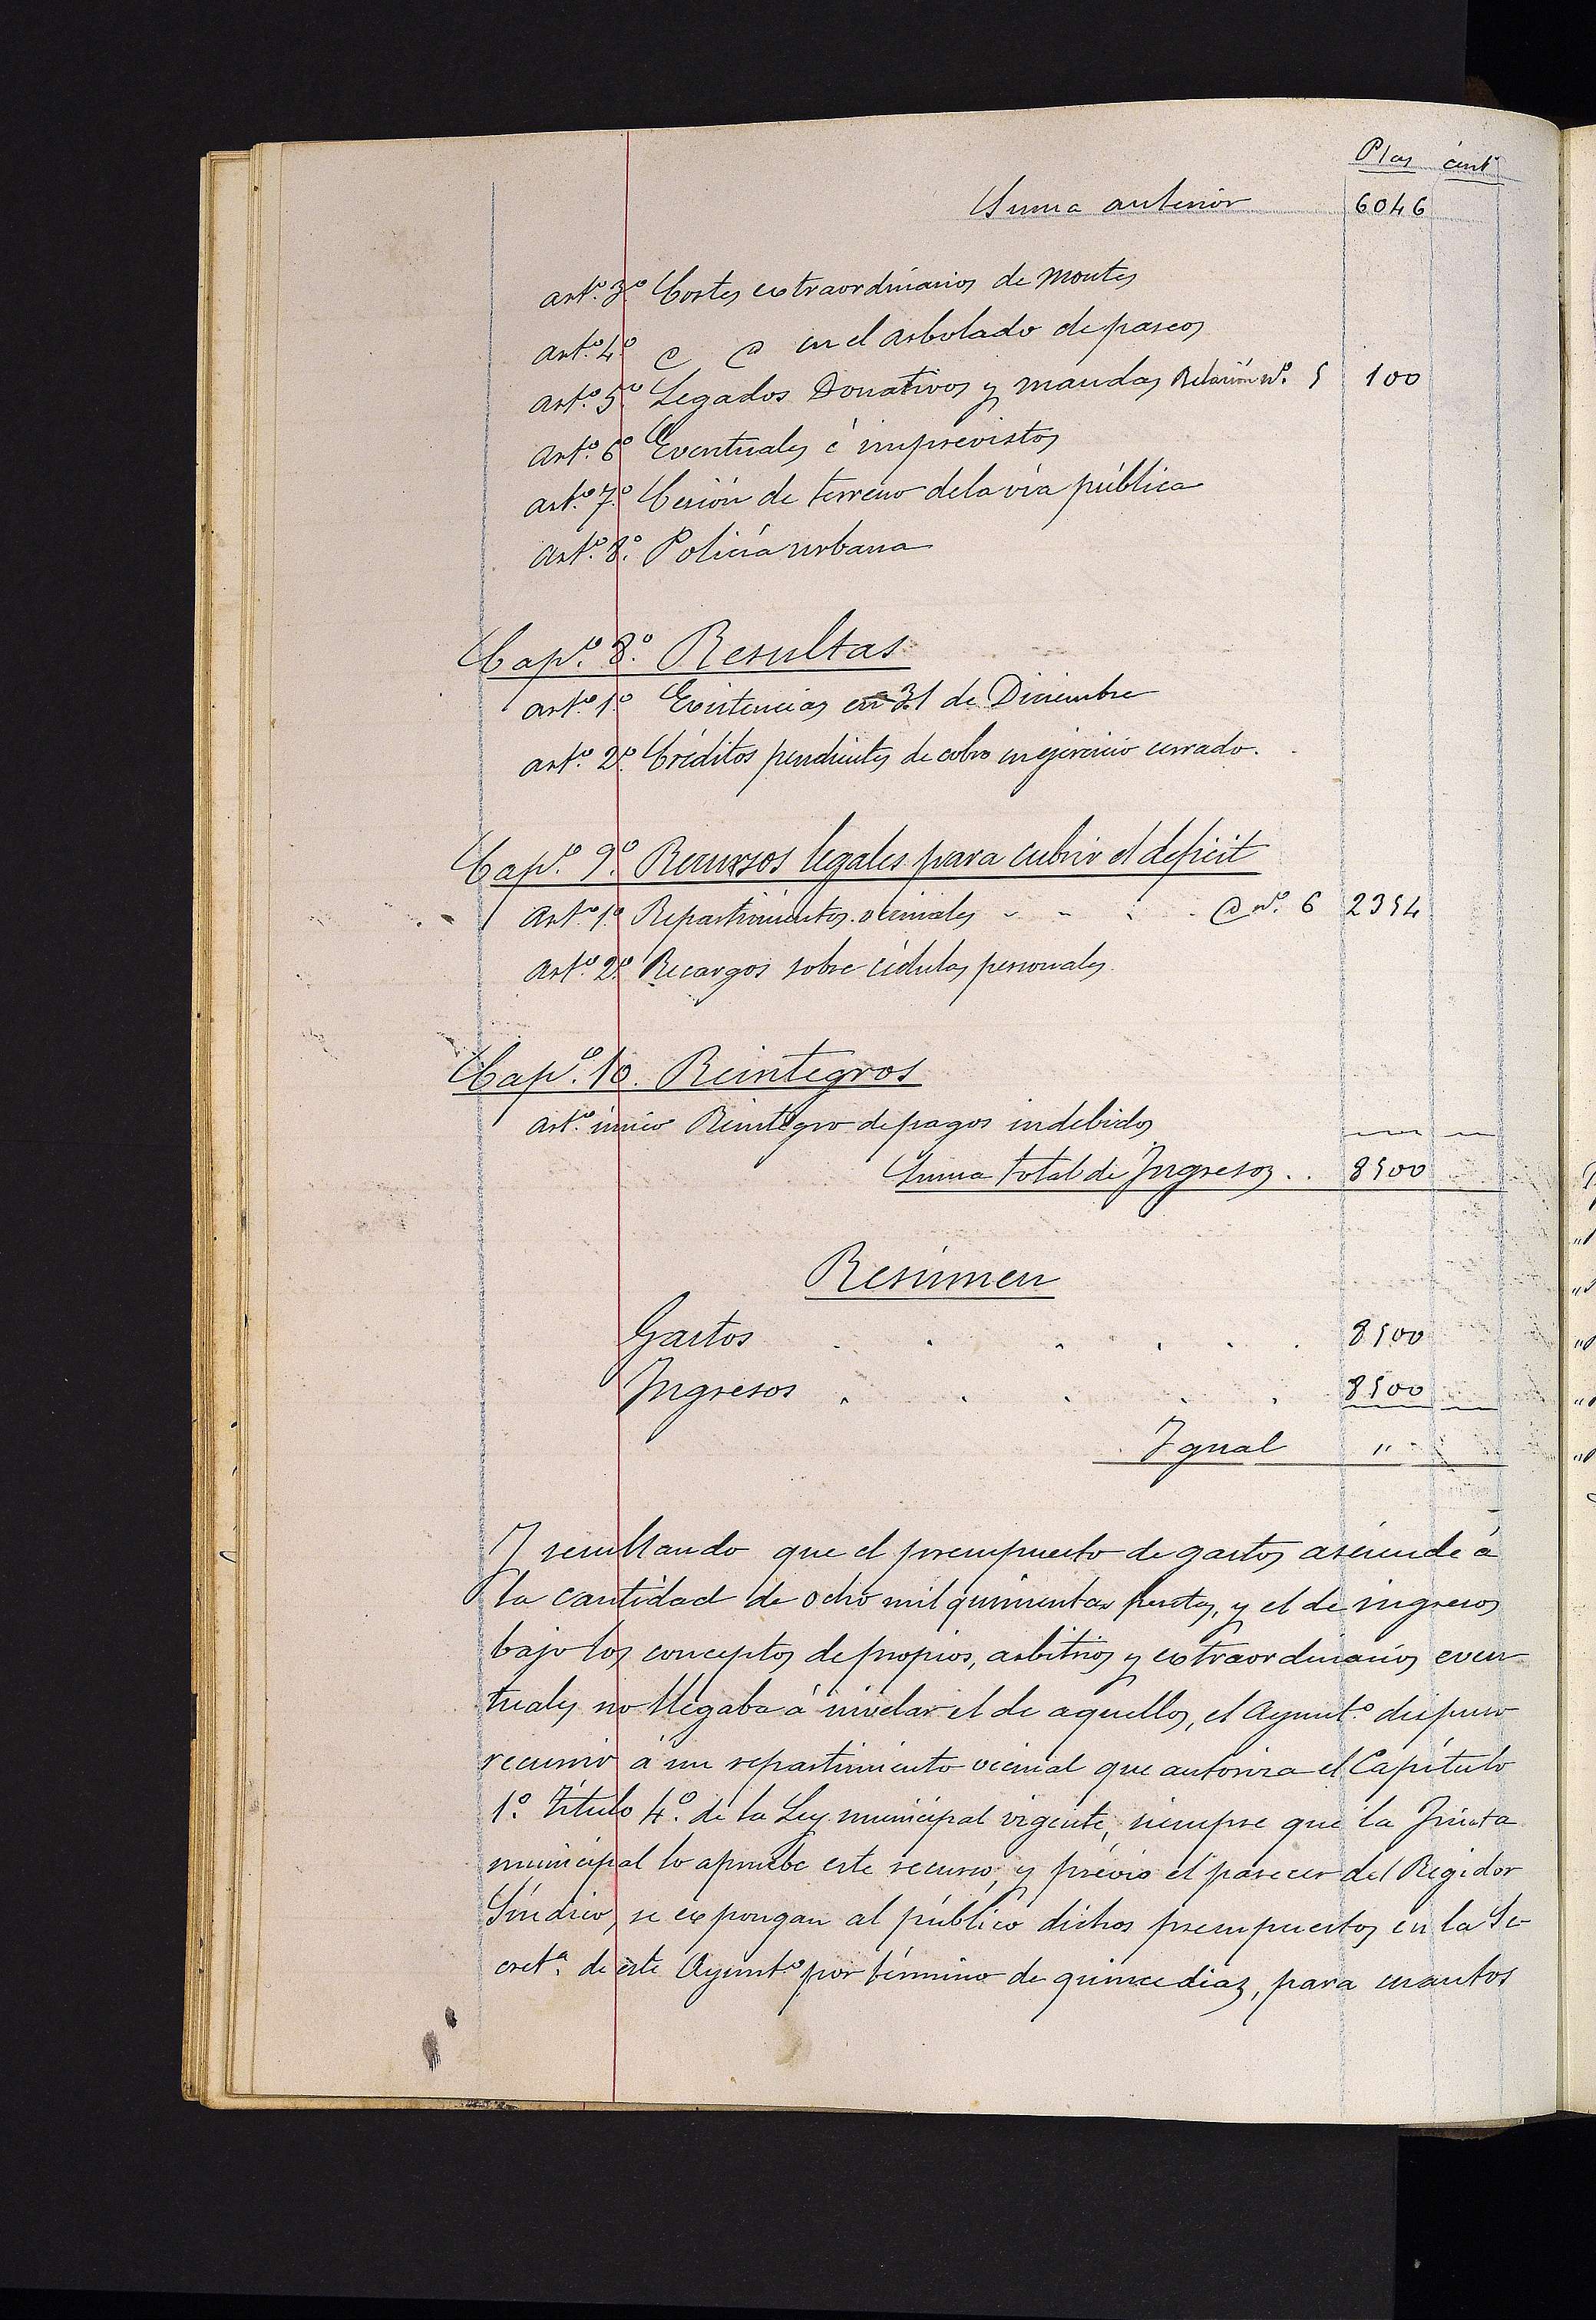 Ptas cént.
Suma anterior 6046
Art.º 3.º Cortes extraordinarios de montes
Art.º 4.º @ @ en el arbolado de paseos
Art.º 5.º Legados Donativos y mandas Relación n.º 5 100
Art.º 6.º Eventuales é imprevistos
Art.º 7.º Cesión de terreno de la vía pública
Art.º 8.º Policía urbana
Cap.º 8.º Resultas
Art.º 1.º Existencias en 31 de Diciembre
Art.º 2.º Créditos pendientes de cobro en ejercicio cerrado.
Cap.º 9.º Recursos legales para cubrir el deficit
Art.º 1.º Repartimientos vecinales @ n.º 6 2354
Art.º 2.º Recargos sobre cédulas personales.
Cap.º 10. Reintegros
Art.º único Reintegro de pagos indebidos
Suma total de Ingresos . . 8500
Resúmen
Gastos . . . . . . 8500
Ingresos . . . . . 8500
Igual "
Y resultando que el presupuesto de gastos asciende á
la cantidad de ocho mil quinientas pesetas, y el de ingresos
bajo los conceptos de propios, arbitrios y extraordinarios even
tuales no llegaba á nivelar el de aquellos, el Ayunt.º dispuso
recurrir á un repartimiento vecinal que autoriza el Capítulo
1.º Título 4.º de la Ley municipal vigente, siempre que la Junta
municipal lo apruebe este recurso, y prévio el parecer del Regidor
Síndico, se expongan al público dichos presupuestos en la Se-
cret.ª de este Ayunt.º por término de quince diaz, para cuantos